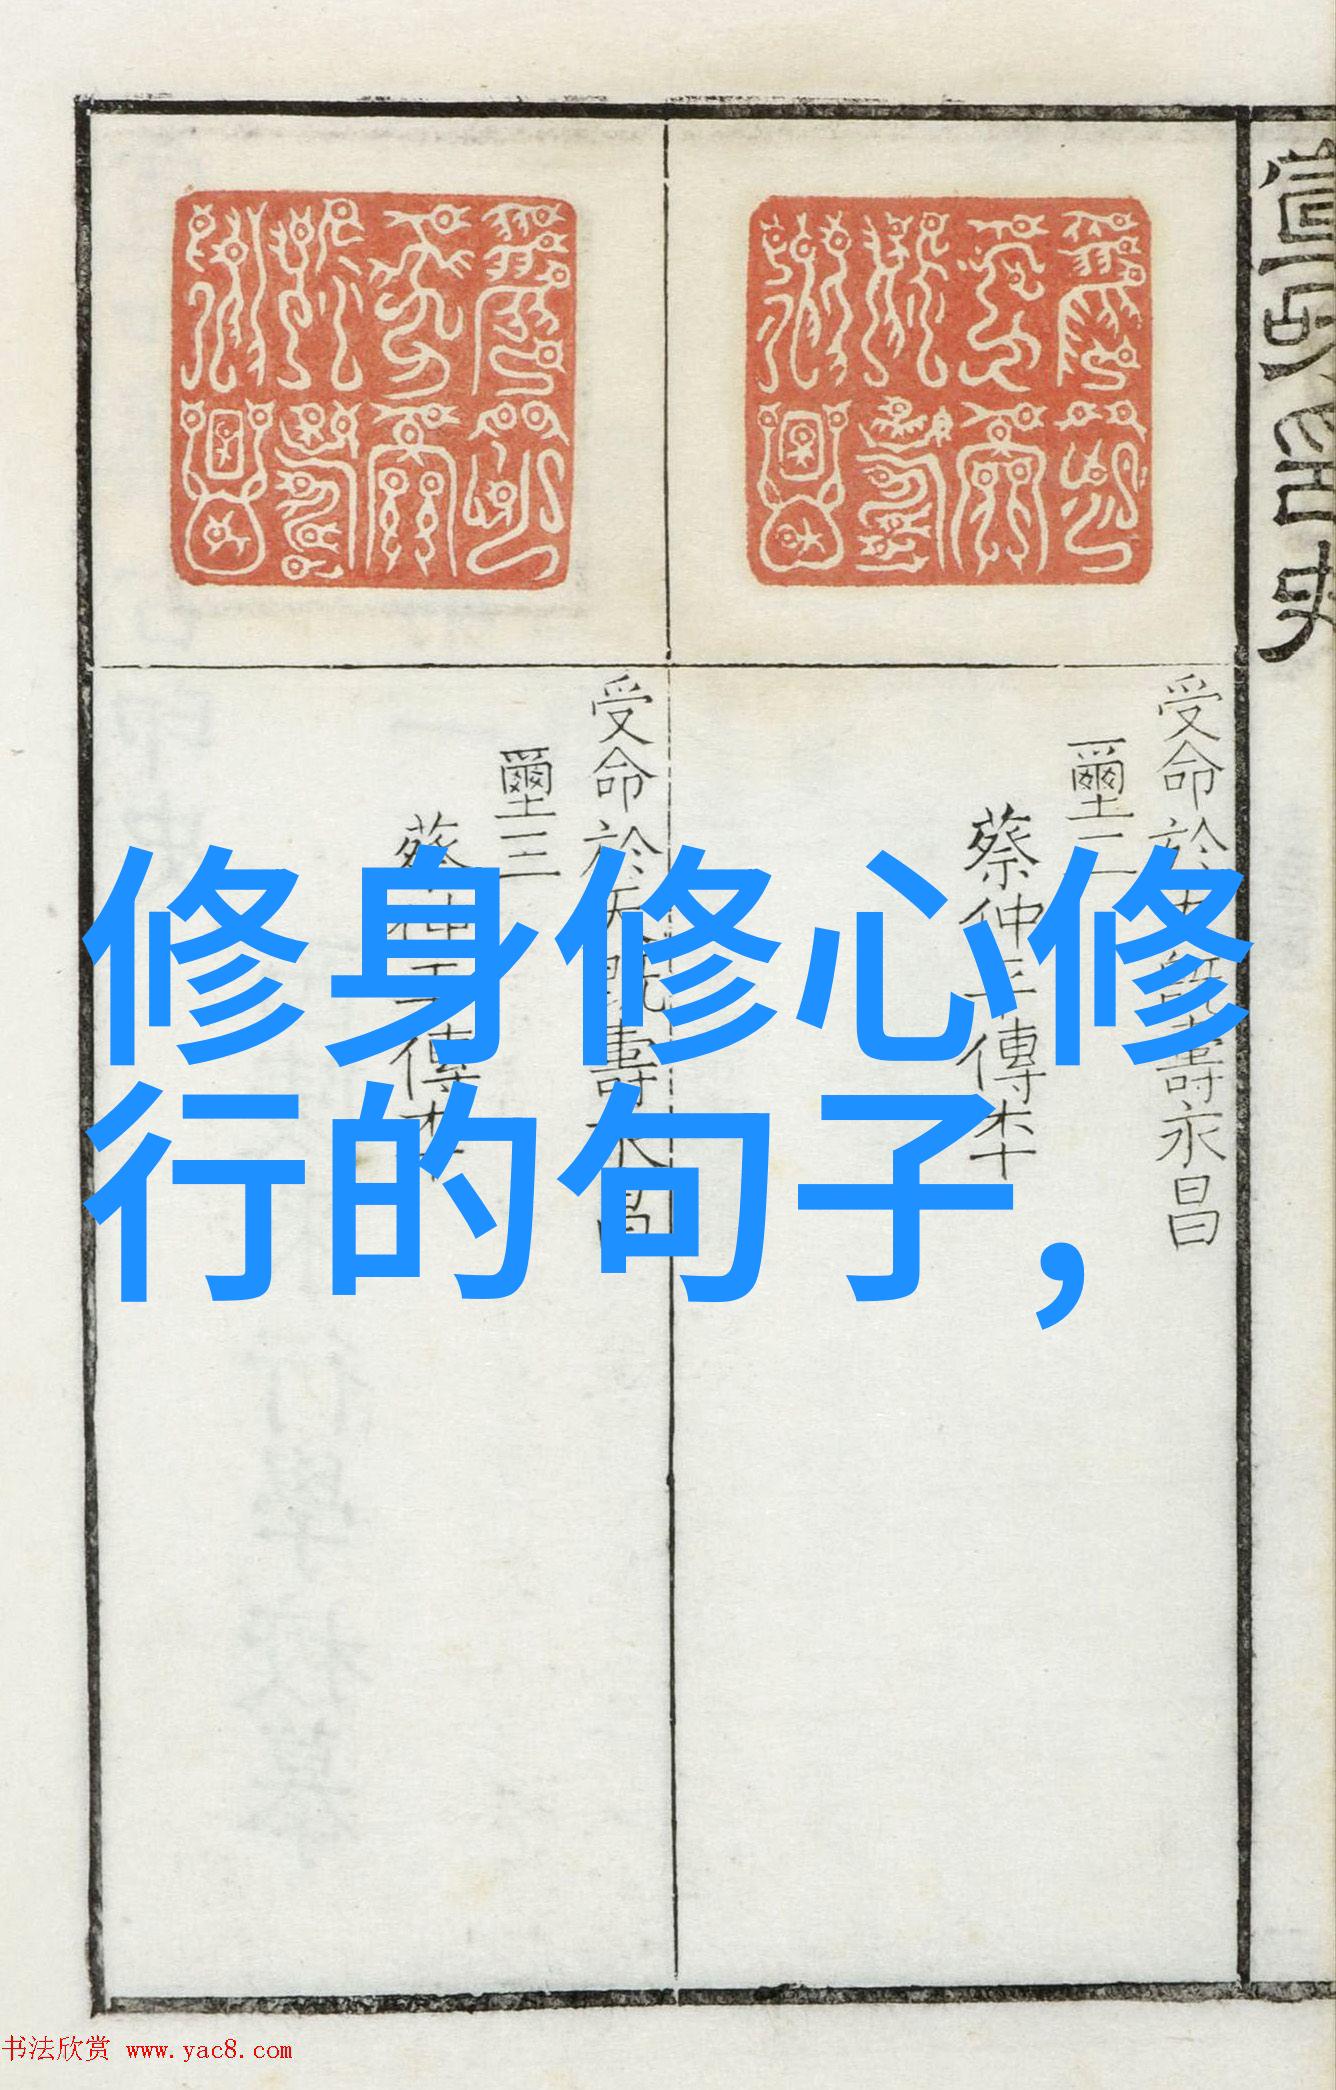 修身修心修
行的句子，
受命於天既壽永昌
璽二
蔡仲平傳本
受命於天既壽永昌
璽三
蔡仲平傳本
书法欣赏 www.yac8.com